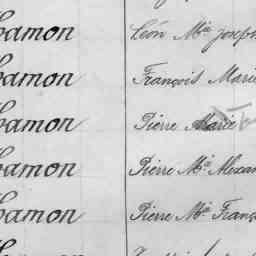 amon Léon Mie Joseph
amon François Marie
amon Pierre Marie
amon Pierre Mie Alexan
amon Pierre Mie Franç